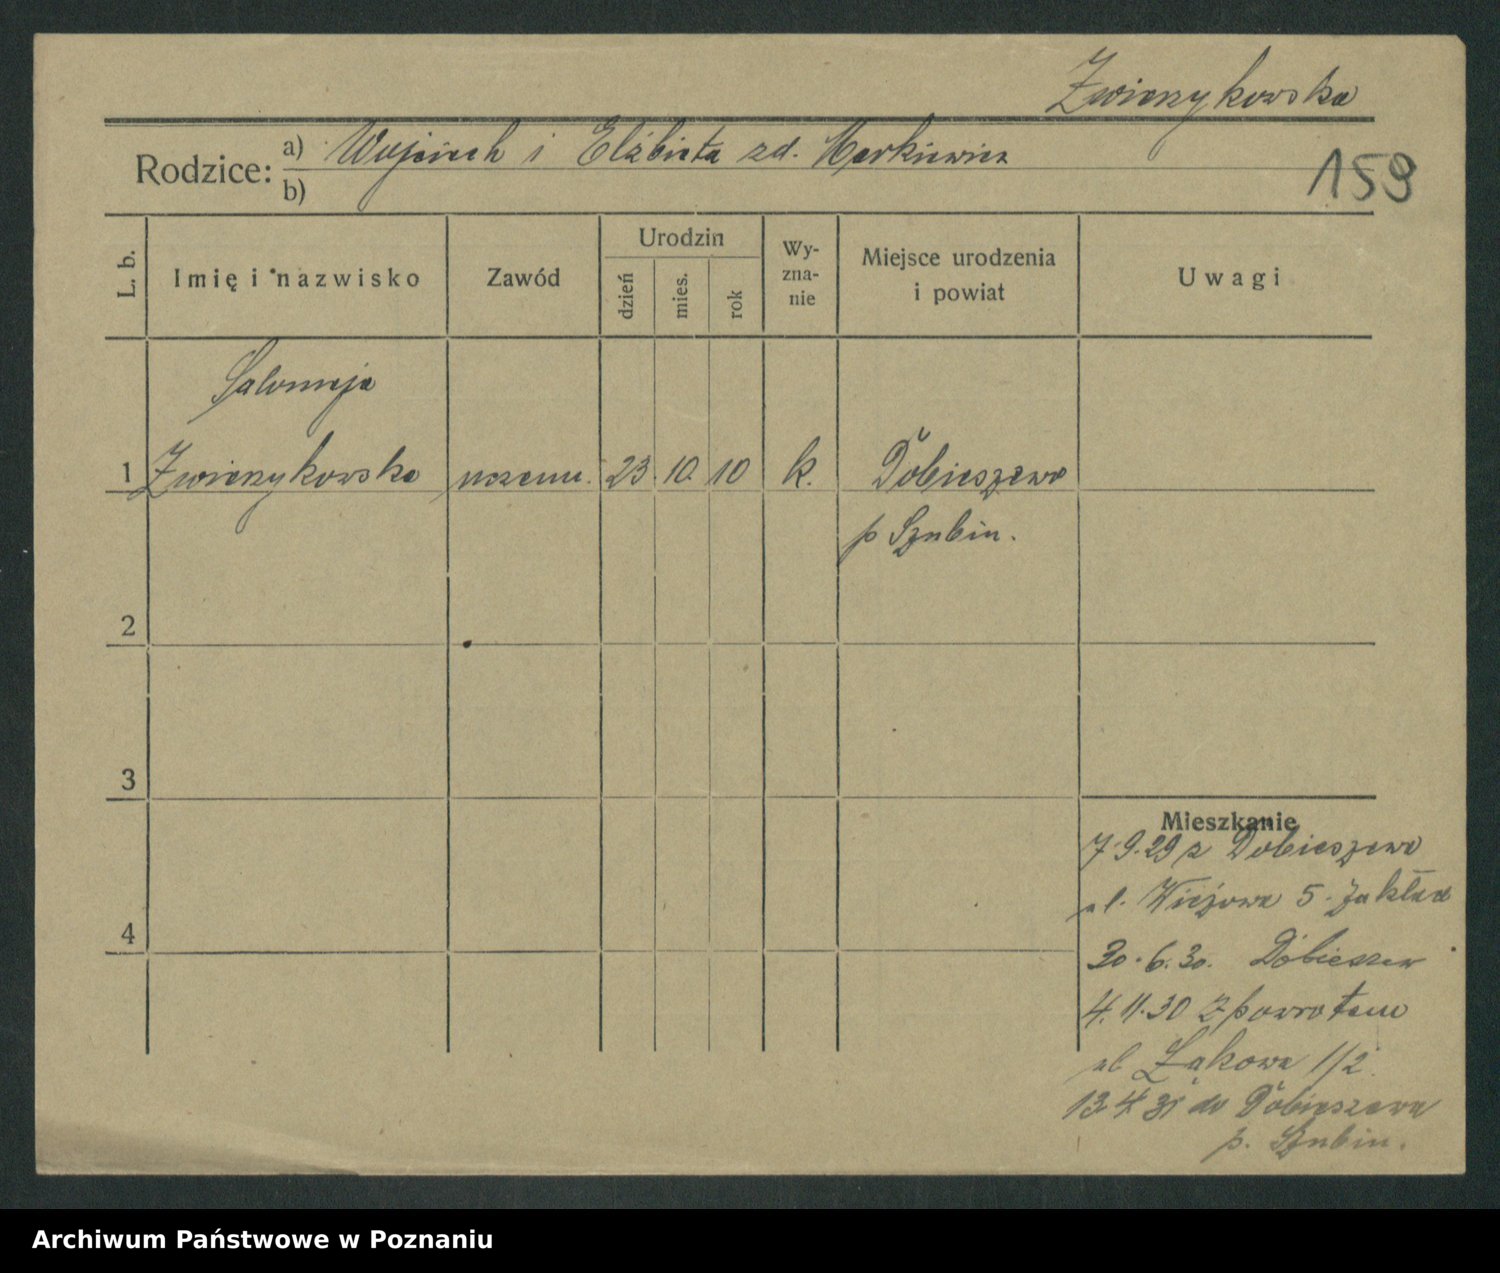 Zwierzykowska
Rodzice:
a) Wojciech i Elżbieta zd. Markiewicz
b)
159
L. b.
Imię i nazwisko
Zawód
Urodzin
dzień
mies.
rok
Wy-
zna-
nie
Miejsce urodzenia
i powiat
Uwagi
Salomeja
1 Zwierzykowska uczenn. 23. 10. 10 k. Dobieszewo
p Szubin.
2
3
4
Mieszkanie
7.9.29 z Dobieszewo
ul. Wieżowa 5. Zakład
30.6.30. Dobieszew
4.11.30 z powrotem
ul Łąkowa 1/2.
13 4 31 do Dobieszewa
p. Szubin.
Archiwum Państwowe w Poznaniu